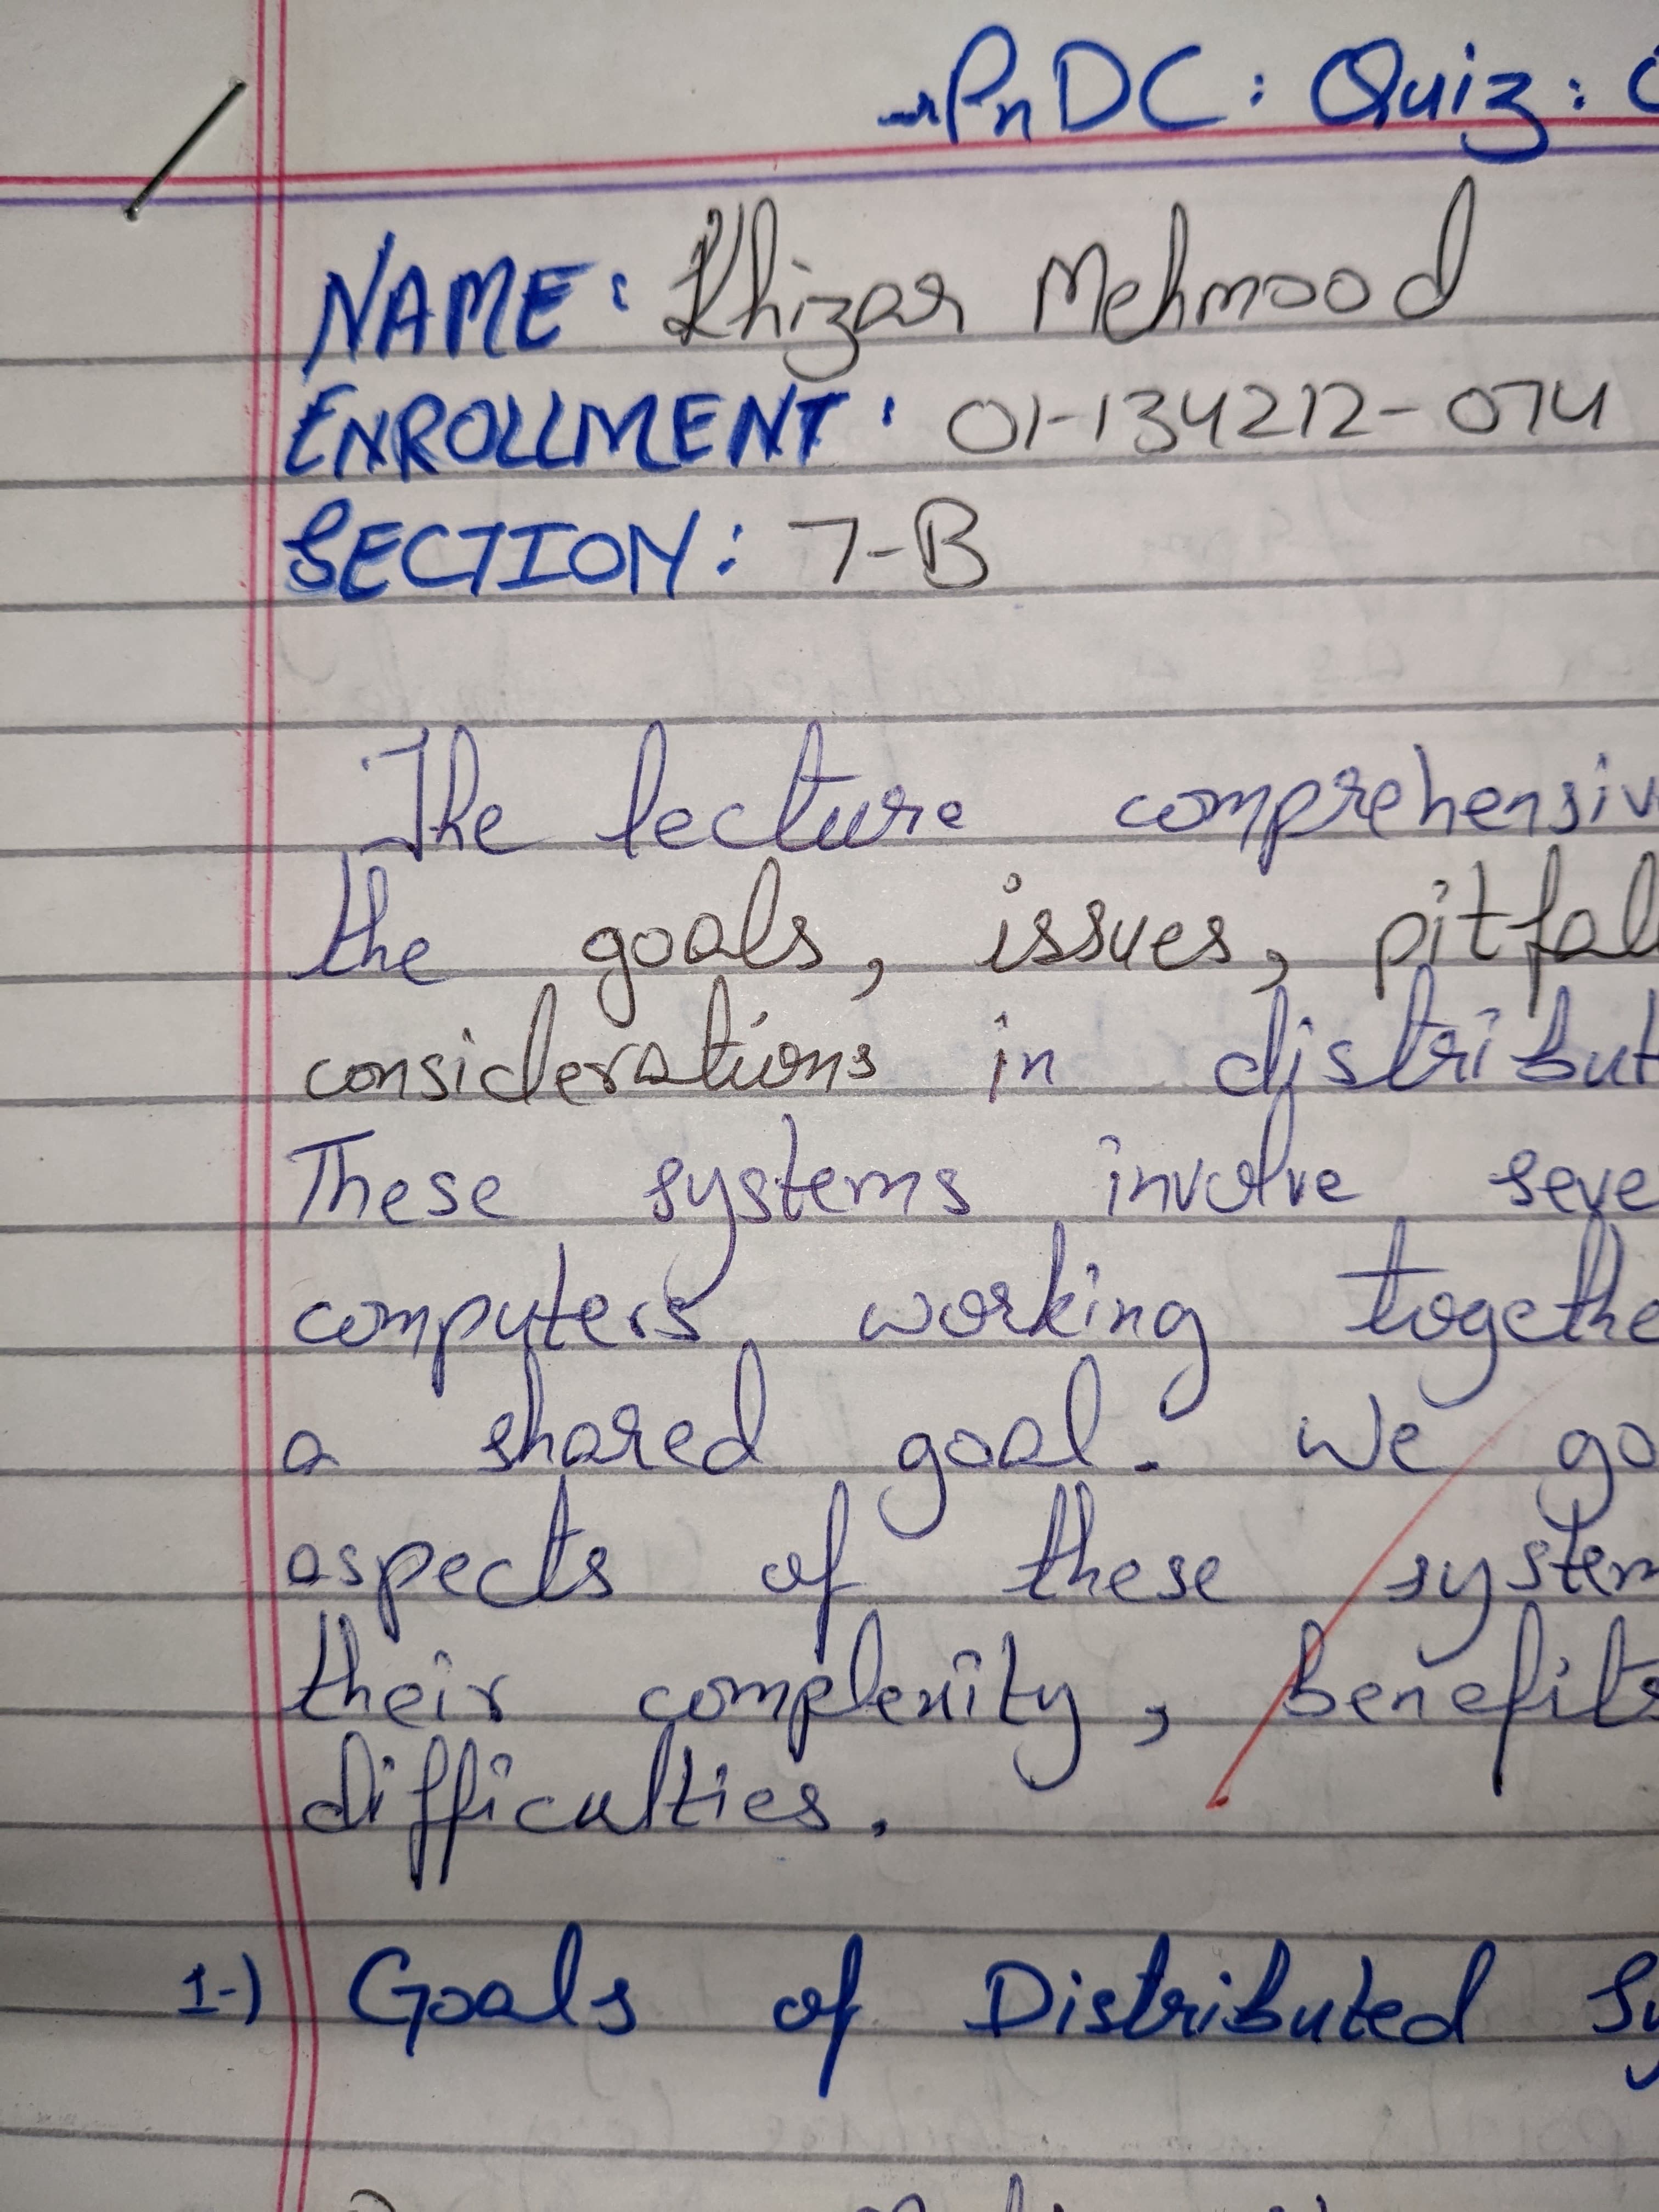 PnDC: Quiz:
NAME: Khizar Mehmood
ENROLLMENT: 01-134212-074
SECTION: 7-B
The lecture comprehensiv
the goals, issues, pitfal
considerations in distribut
These systems involve seve
computers working togethe
a shared goal. We go
aspects of these system
their complexity, benefits
difficulties.
1-) Goals of Distributed Sy